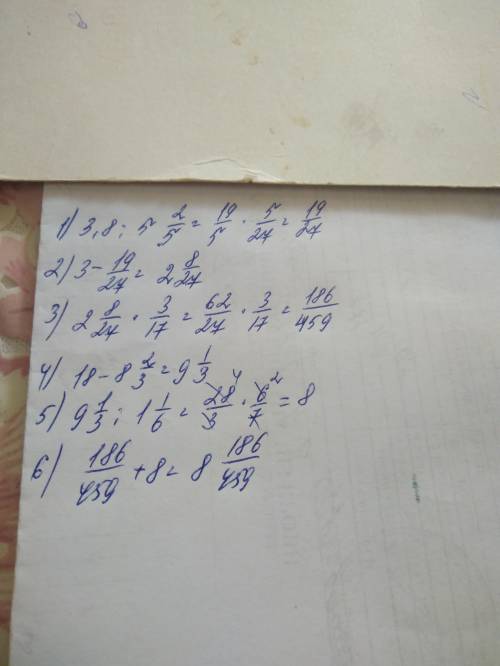 1) 3,8 : 5 2/5 = 19/5 · 5/27 = 19/27
2) 3 - 19/27 = 2 8/27
3) 2 8/27 · 3/17 = 62/27 · 3/17 = 186/459
4) 18 - 8 2/3 = 9 1/3
5) 9 1/3 : 1 1/6 = 28/3 · 6/7 = 8
6) 186/459 + 8 = 8 186/459